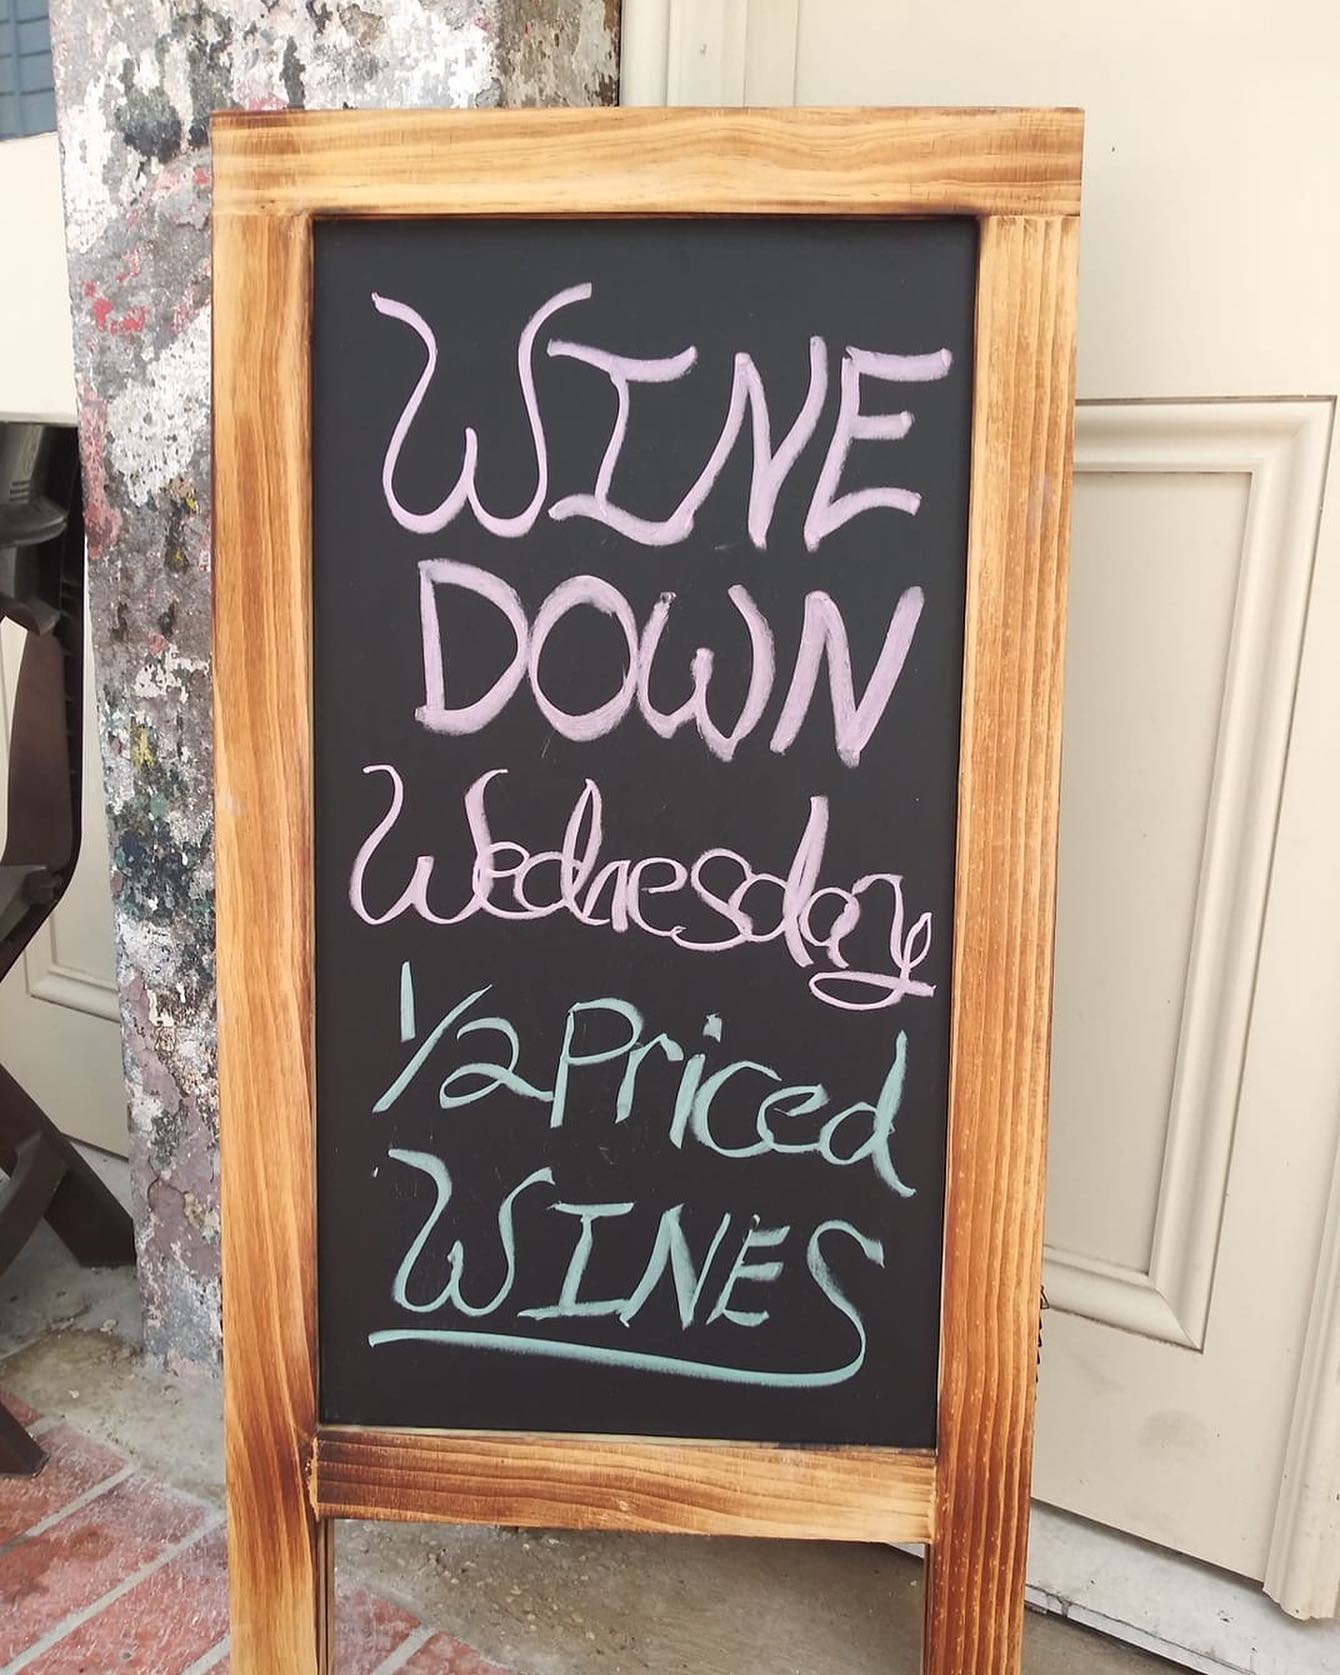 WINE
DOWN
Wednesday
1/2 Priced
WINES